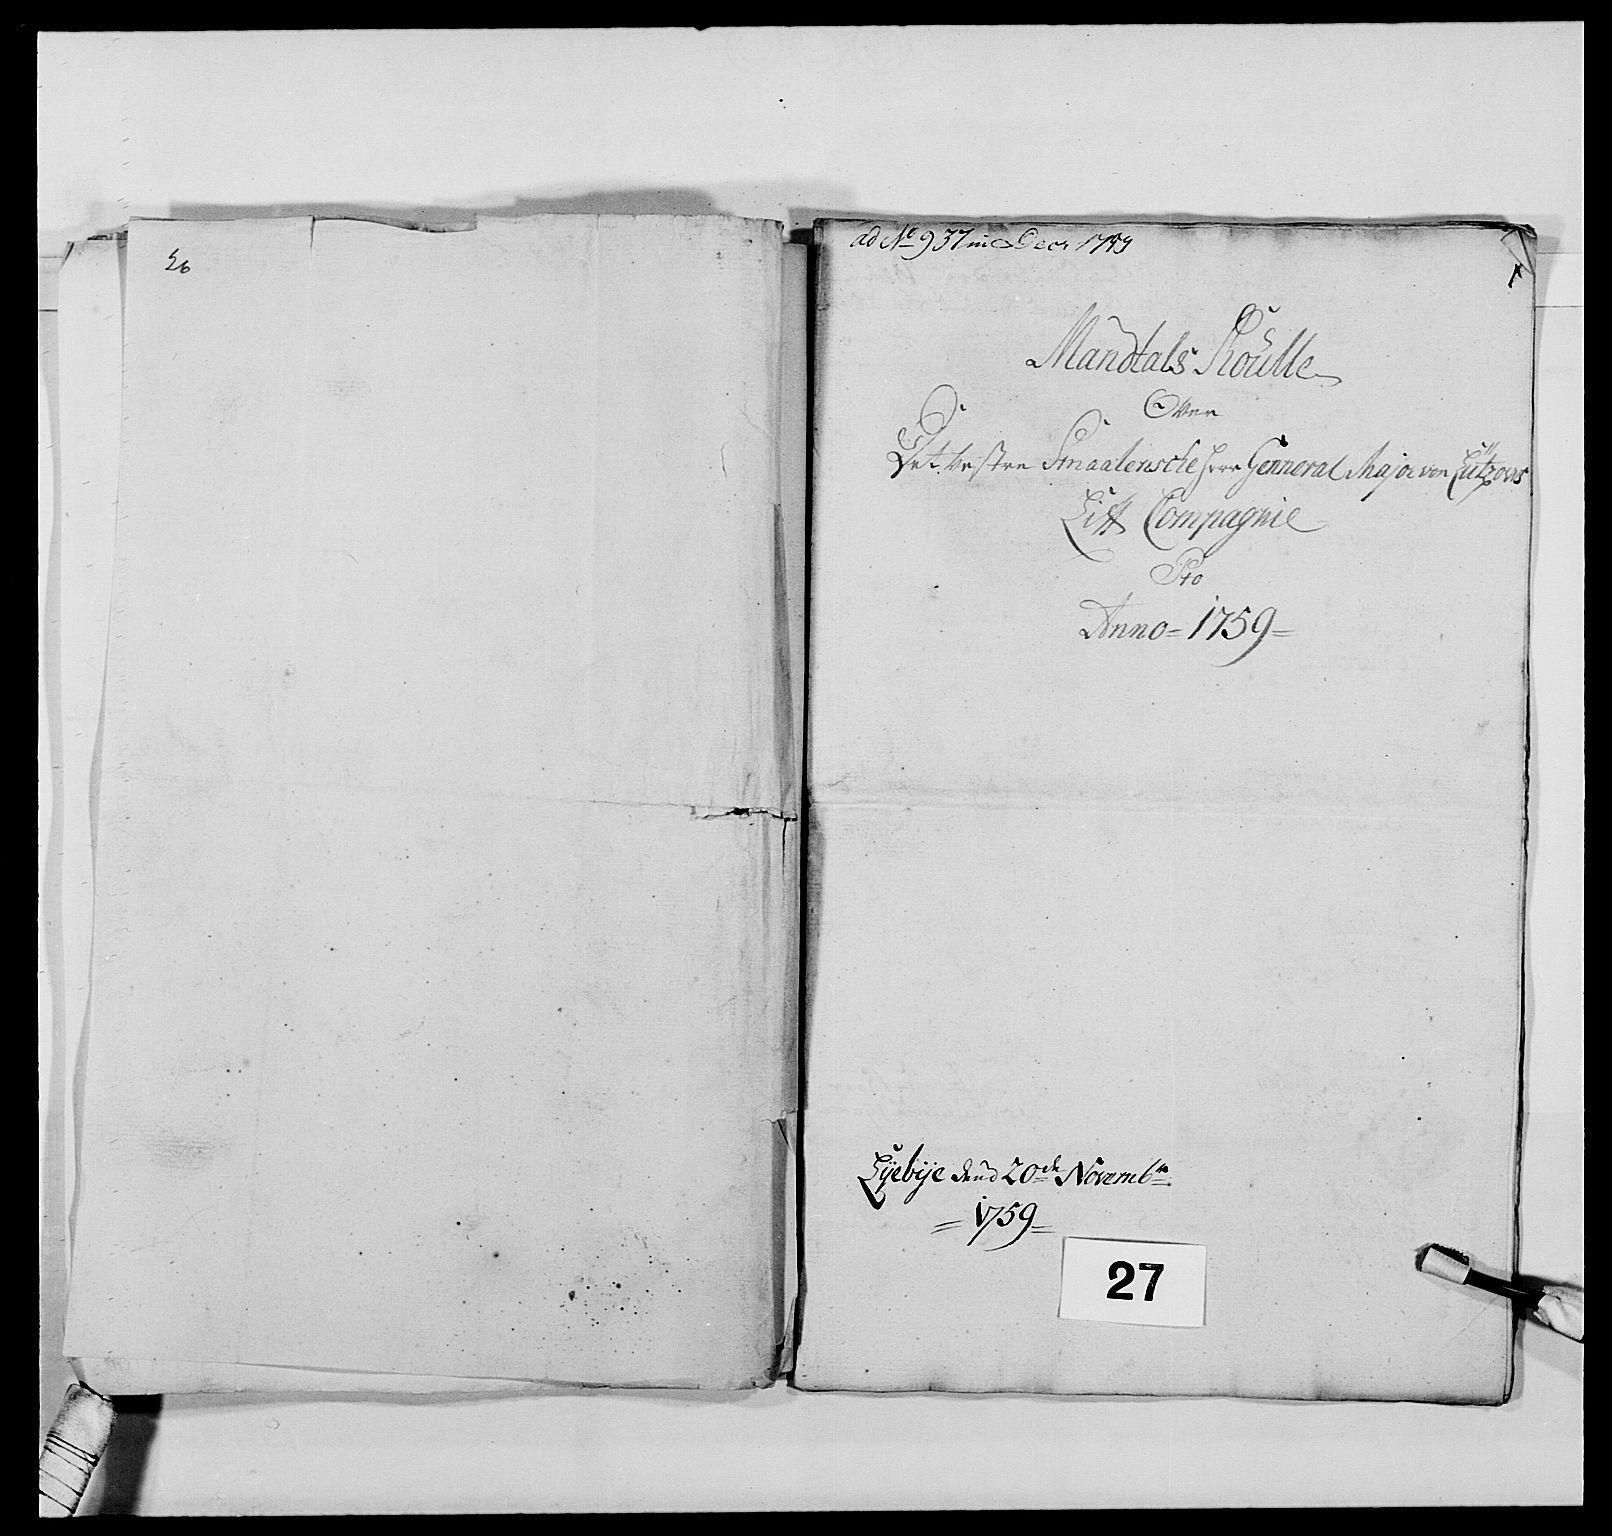 26
ad No 937 in Decr 1759
1
Mandtals Roulle
Over
Det Vestre Smaalensche Herr Genneral Major von Lützows
Liff Compagnie
Pro
Anno = 1759 =
Lÿebÿe dend 20de Novembr
= 1759 =
27